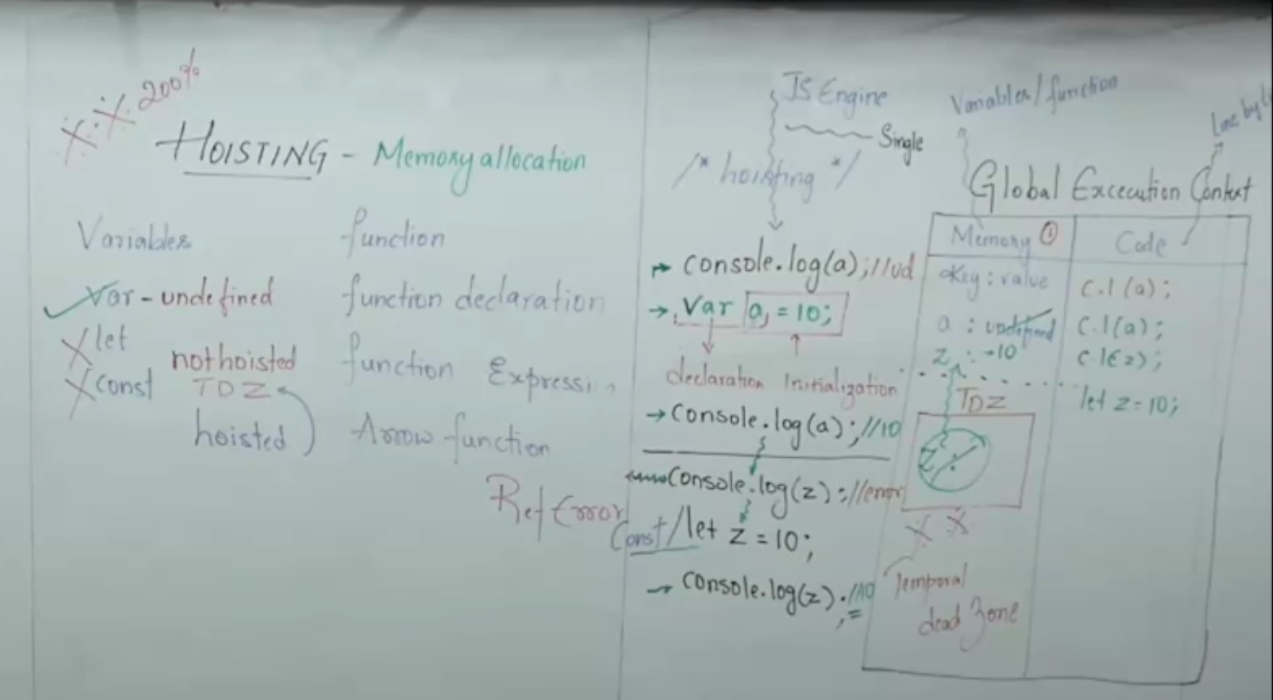 X. X. 200%
HOISTING - Memory allocation
Variables
function
var - undefined
function declaration
X let
not hoisted
function Expression
X const
TDZ
hoisted
Arrow function
Ref Error
JS Engine
Single
/* hoisting */
console.log(a); //ud
var a = 10;
declaration Initialization
console.log(a); //10
console.log(z); //error
Const/let z = 10;
console.log(z). //10
Variables/function
Line by
Global Excecution Context
Memory ①
Code
Key: value
c.l(a);
a : undefined
c.l(a);
z : 10
c.l(z);
TDZ
let z = 10;
z
X X
Temporal
dead zone